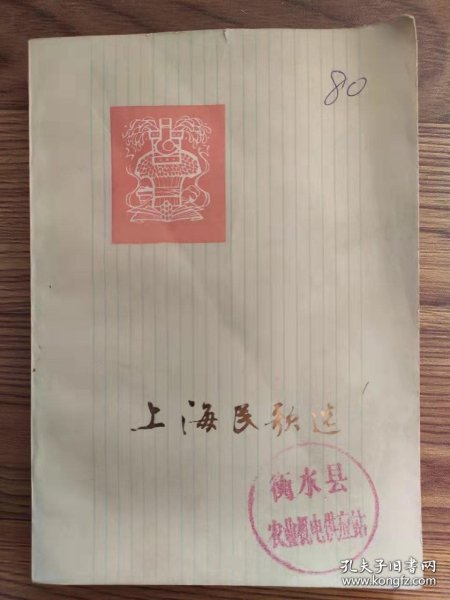 80
上海民歌选
衡水县
农业机电供应站
孔夫子旧书网
www.kongfz.com